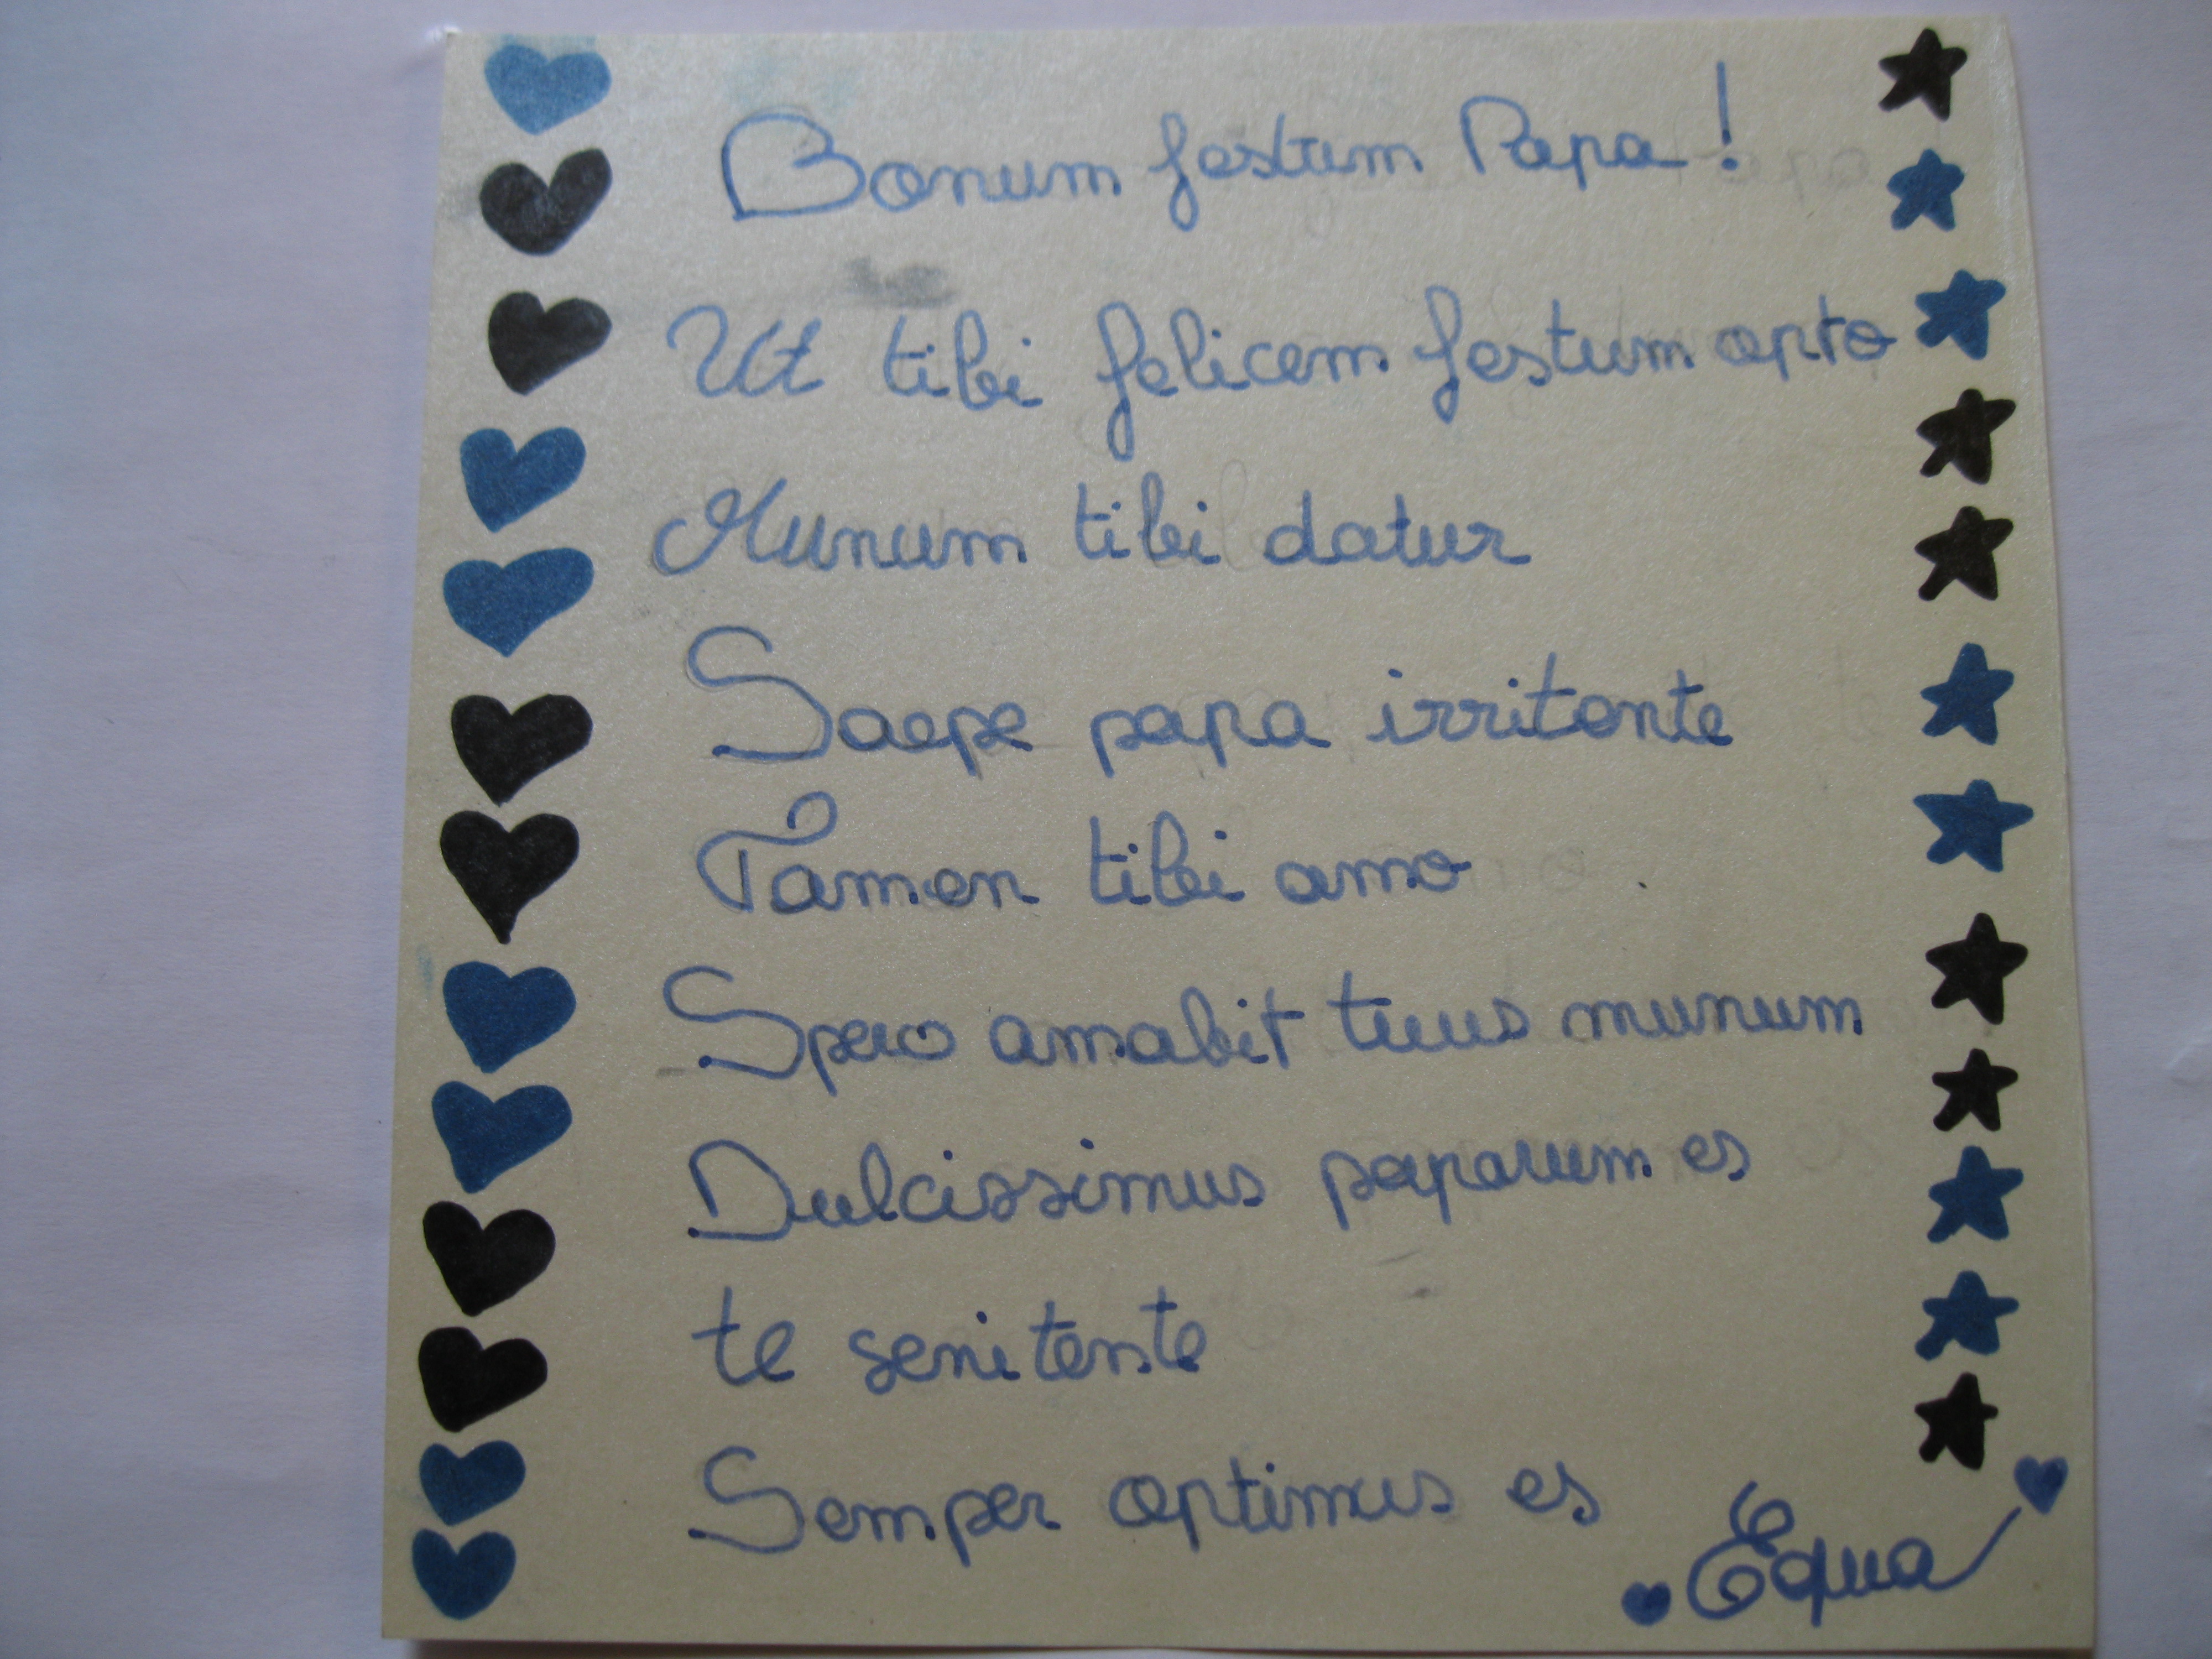 Bonum festum Papa !
Ut tibi felicem festum opto
Munum tibi datur
Saepe papa irritante
Tamen tibi amo
Spero amabit tuus munum
Dulcissimus paparum es
te senitente
Semper optimus es
Equa